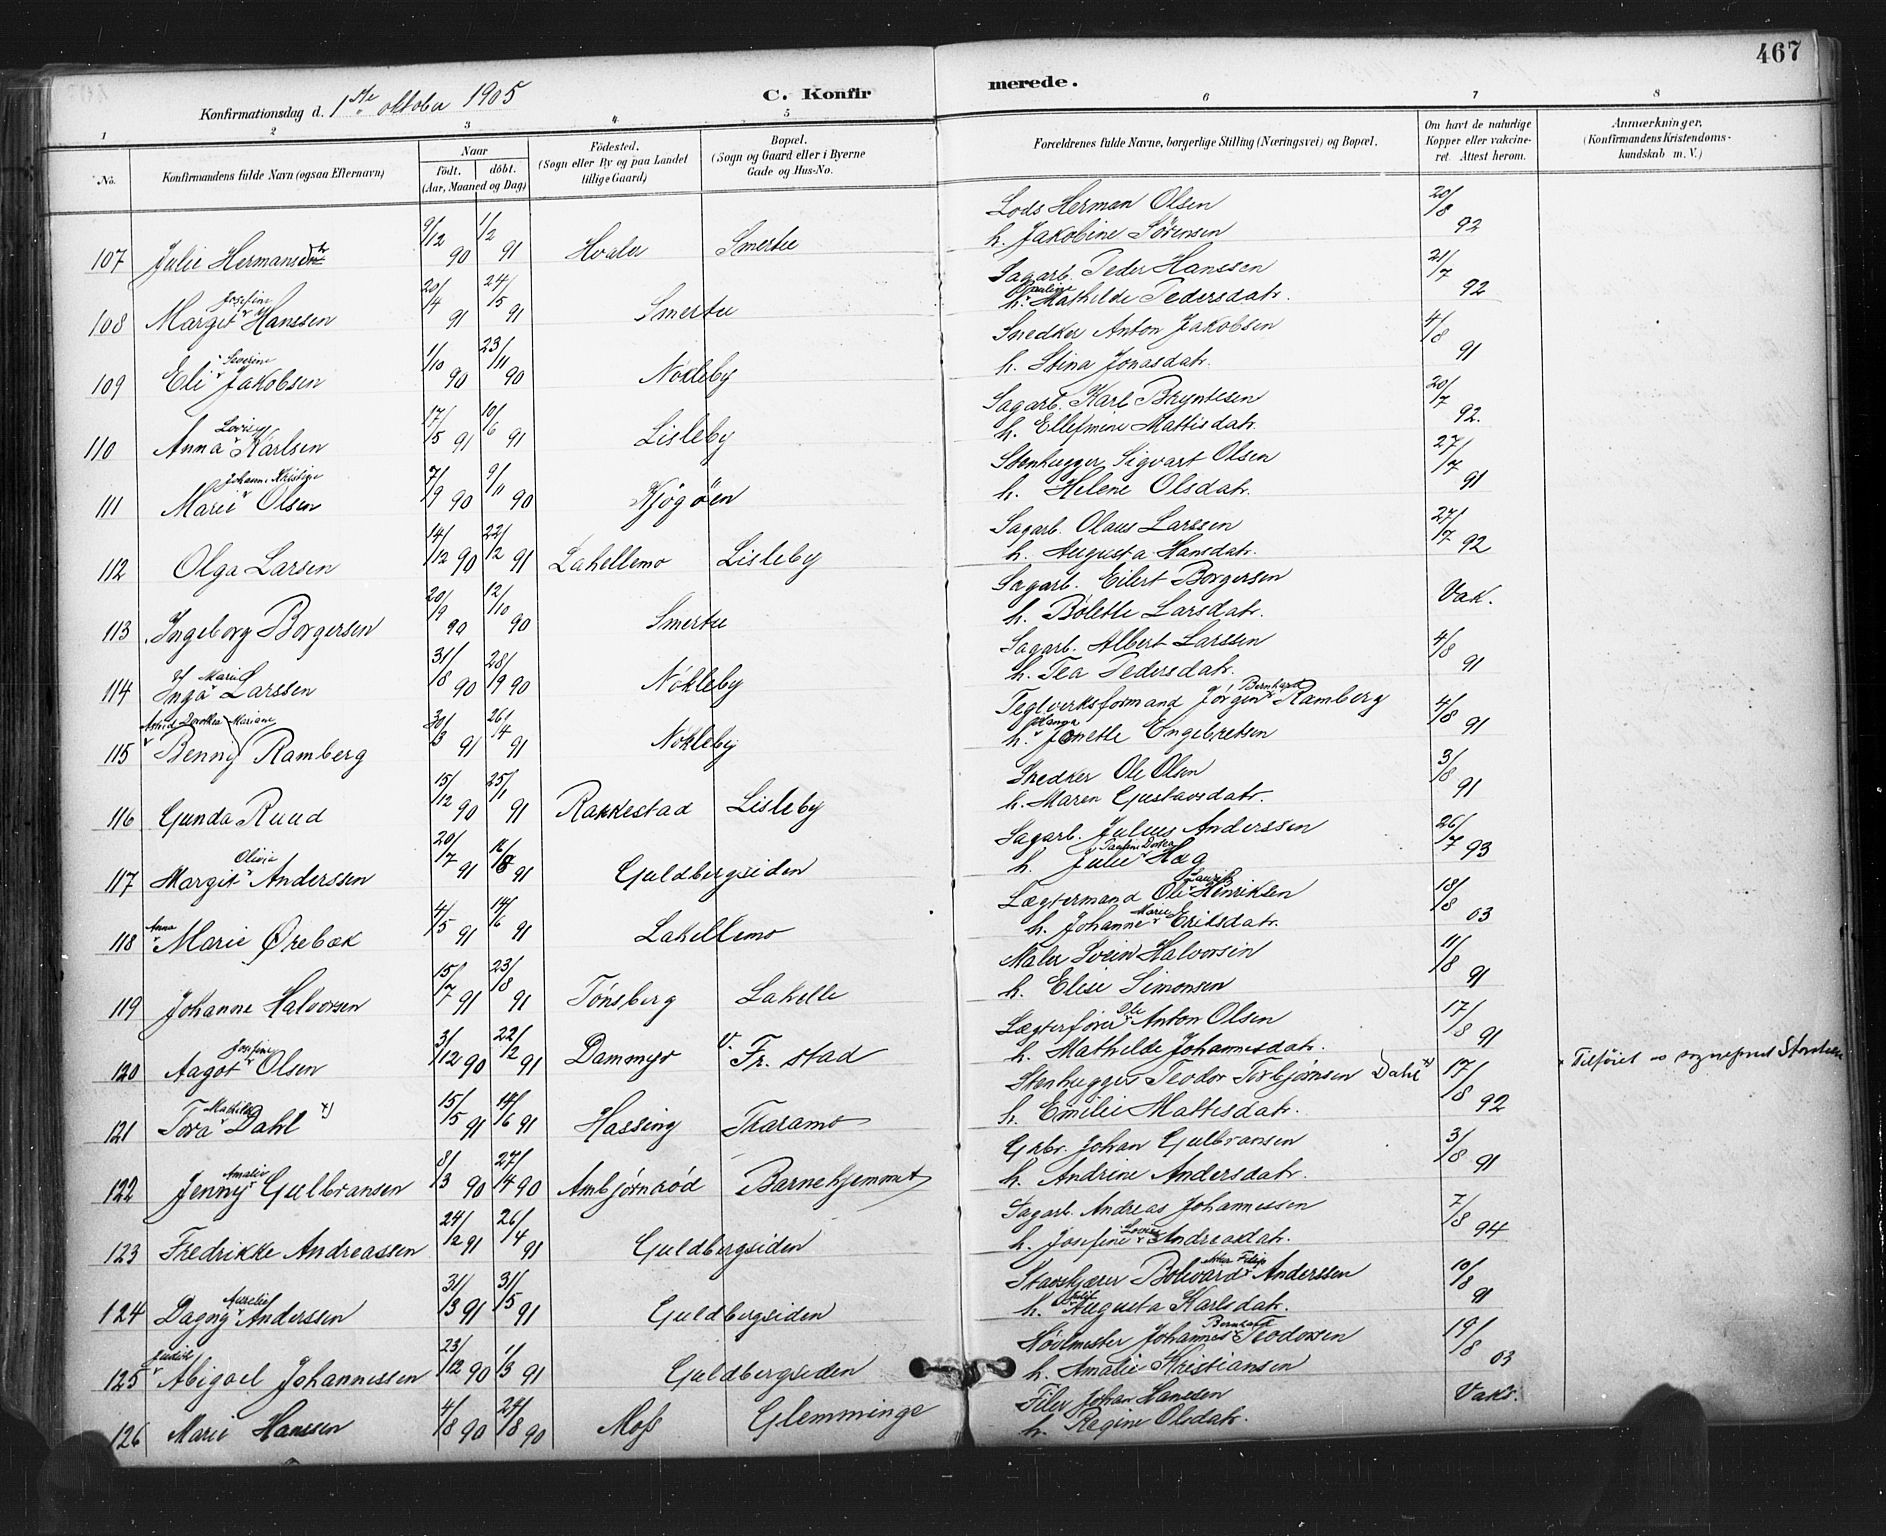 467
Konfirmationsdag d. 1ste oktober 1905
C. Konfirmerede.
1 2 3 4 5 6 7 8
No. Konfirmandens fulde Navn (ogsaa Efternavn) Naar født. døbt. (Aar, Maaned og Dag) Fødested. (Sogn eller By og paa Landet tillige Gaard) Bopæl. (Sogn og Gaard eller i Byerne Gade og Hus-No. Forældrenes fulde Navne, borgerlige Stilling (Næringsvei) og Bopæl. Om havt de naturlige Kopper eller vakcineret. Attest herom. Anmærkninger, (Konfirmandens Kristendomskundskab m. V.)
107 Julie Hermansen 9/12 90 1/2 91 Hvaler Smertu Lods Herman Olsen 20/8 92
h. Jakobine Sørensen
108 Margit Josefine Hanssen 20/4 91 24/5 91 Smertu Sagarb. Peder Hanssen 21/7 92
h. Pauline Mathilde Pedersdatr.
109 Eli Severine Jakobsen 1/10 90 23/11 90 Nøkleby Snedker Anton Jakobsen 4/8 91
h. Stina Jonasdatr.
110 Anna Lovise Karlsen 17/5 91 10/6 91 Lisleby Sagarb. Karl Bryntesen 20/7 92.
h. Ellefmine Mattisdatr.
111 Marie Johanne Kristine Olsen 7/9 90 9/11 90 Kjøgøen Stenhugger Sigvart Olsen 27/7 91
h. Helene Olsdatr.
112 Olga Larsen 14/12 90 22/2 91 Lahellemo Lisleby Sagarb. Olaus Larssen 27/7 92
h. Augusta Hansdatr.
113 Ingeborg Borgersen 20/9 90 12/10 90 Smertu Sagarb. Eilert Borgersen Vak.
h. Bolette Larsdatr.
114 Inga Marie Larssen 31/8 90 28/9 90 Nøkleby Sagarb. Albert Larssen 4/8 91
h. Tea Pedersdatr.
115 Astrid Dorothea Mariane Benny Ramberg 30/3 91 26/4 91 Nøkleby Teglverksformand Jørgen Bernhard Ramberg 4/8 91
h. Janette Engebretsen
116 Gunda Ruud 15/12 90 25/1 91 Rakkestad Lisleby Snedker Ole Olsen 3/8 91
h. Maren Gustavsdatr.
117 Margit Olivia Anderssen 20/7 91 16/8 91 Guldbergsiden Sagarb. Julius Anderssen 26/7 93
h. Julie Hag
118 Anna Marie Ørebæk 4/5 91 14/6 91 Lahellemo Lægtermand Ole Lauritz Henriksen 18/8 03
h. Johanne Marie Eriksdatr.
119 Johanne Halvorsen 15/7 91 23/8 91 Tønsberg Lahelle Maler Svein Halvorsen 11/8 91
h. Elise Simonsen
120 Aagot Josefine Olsen 3/12 90 22/2 91 Dammyr V. Fr. stad Lægterfører Ole Anton Olsen 17/8 91
h. Mathilde Johannesdatr.
121 Tora Mathilde Dahl x) 15/5 91 14/6 91 Hassing Tharamo Stenhugger Teodor Torbjørnsen Dahl x) 17/8 92 x Tilføiet
h. Emilie Mattisdatr.
122 Jenny Amalie Gulbransen 8/3 90 27/4 90 Ambjørnrød Barnehjemmet Grbr. Johan Gulbransen 3/8 91
h. Andrine Andersdatr.
123 Fredrikke Andreassen 24/2 91 26/4 91 Guldbergsiden Sagarb. Andreas Johannessen 7/8 94
h. Josefine Lovise Andreasdatr.
124 Dagny Aurelie Anderssen 31/3 91 31/5 91 Guldbergsiden Anderssen 10/8 91
h. Augusta Karlsdatr.
125 Judith Abigael Johannessen 23/12 90 1/3 91 Guldbergsiden Johannes Bernhard Teodorsen 19/8 03
h. Amalie Kristiansen
126 Marie Hanssen 4/8 90 24/8 90 Moss Glemminge Filer Johan Hanssen Vaks.
h. Regine Olsdatr.